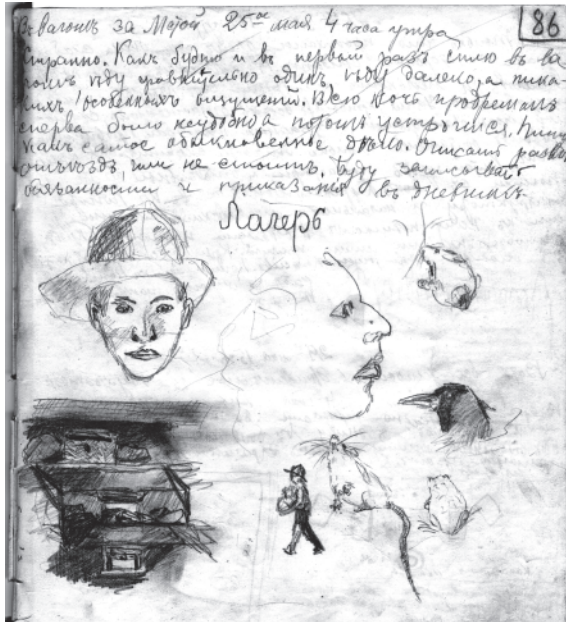 Въ вагонѣ за Мгой 25ое мая 4 часа утра
86
Странно. Какъ будто и въ первый разъ сплю въ ва
гонѣ, ѣду сравнительно одинъ, ѣду далеко, а ника-
кихъ особенныхъ ощущеній. Всю ночь продремалъ
сперва было неудобно а потомъ устроился. Пишу
какъ самое обыкновенное дѣло. Описать разво
отъѣздъ, или не стоитъ. Буду записывать
обязанности и приказанія въ дневникъ
Лагерь